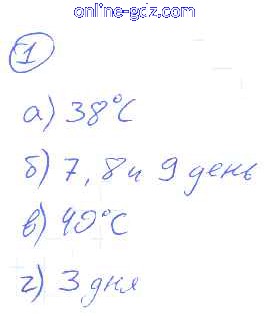 online-gdz.com
1
а) 38°C
б) 7, 8 и 9 день
в) 40°C
г) 3 дня